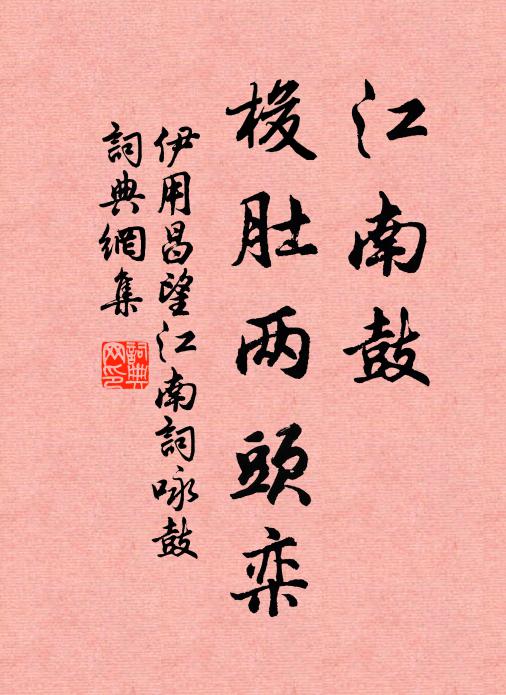 江南鼓
梭肚两頭栾
伊用昌望江南詞咏鼓
詞典網集
詞典网印